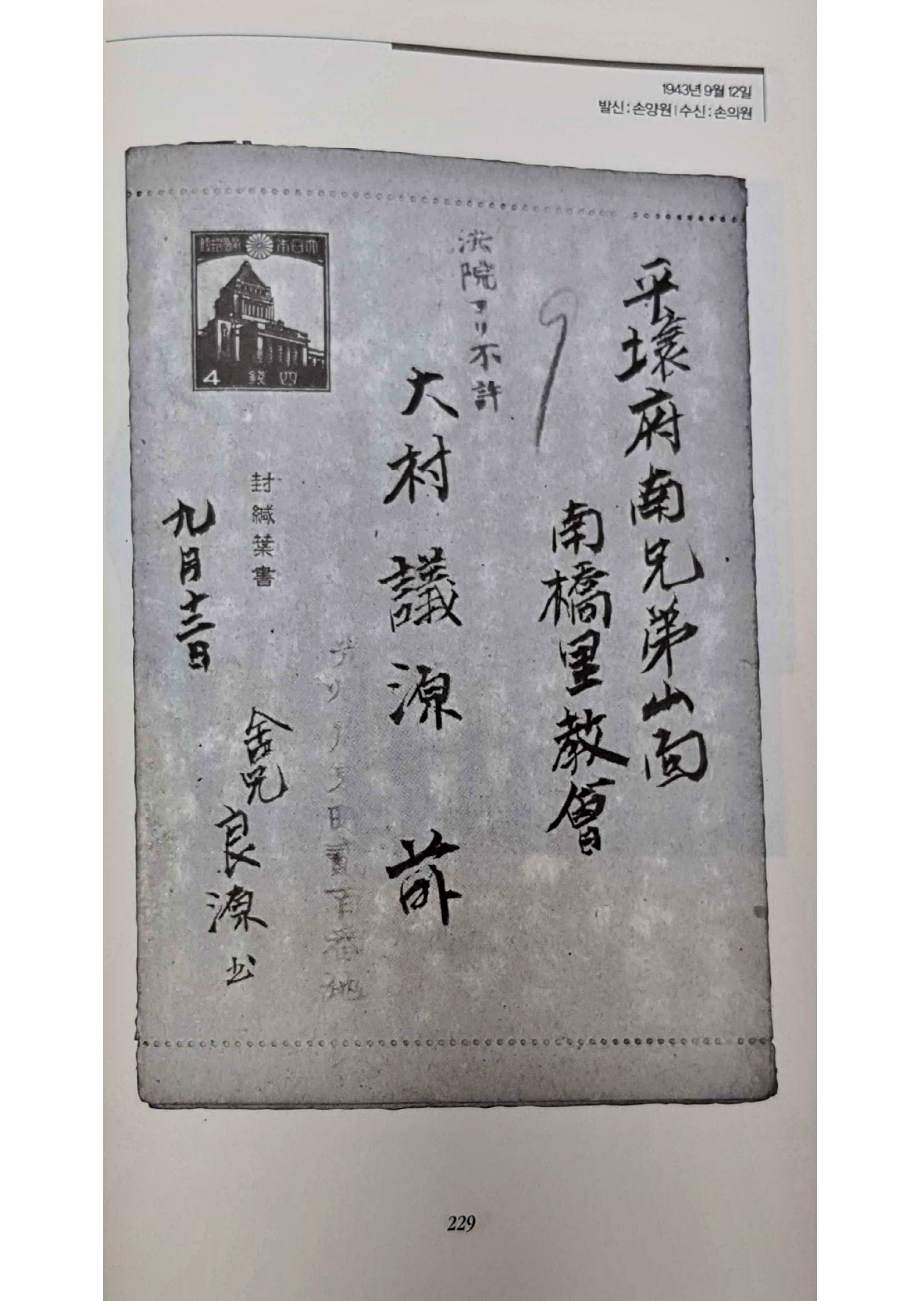 1943년 9월 12일
발신 : 손양원 | 수신 : 손의원
平壤府南兄弟山面
南橋里教會
9
法院ヨリ不許
大村議源 前
大日本帝國郵便
四錢
4
封緘葉書
貳百番地
舍兄 良源 书
九月十二日
229